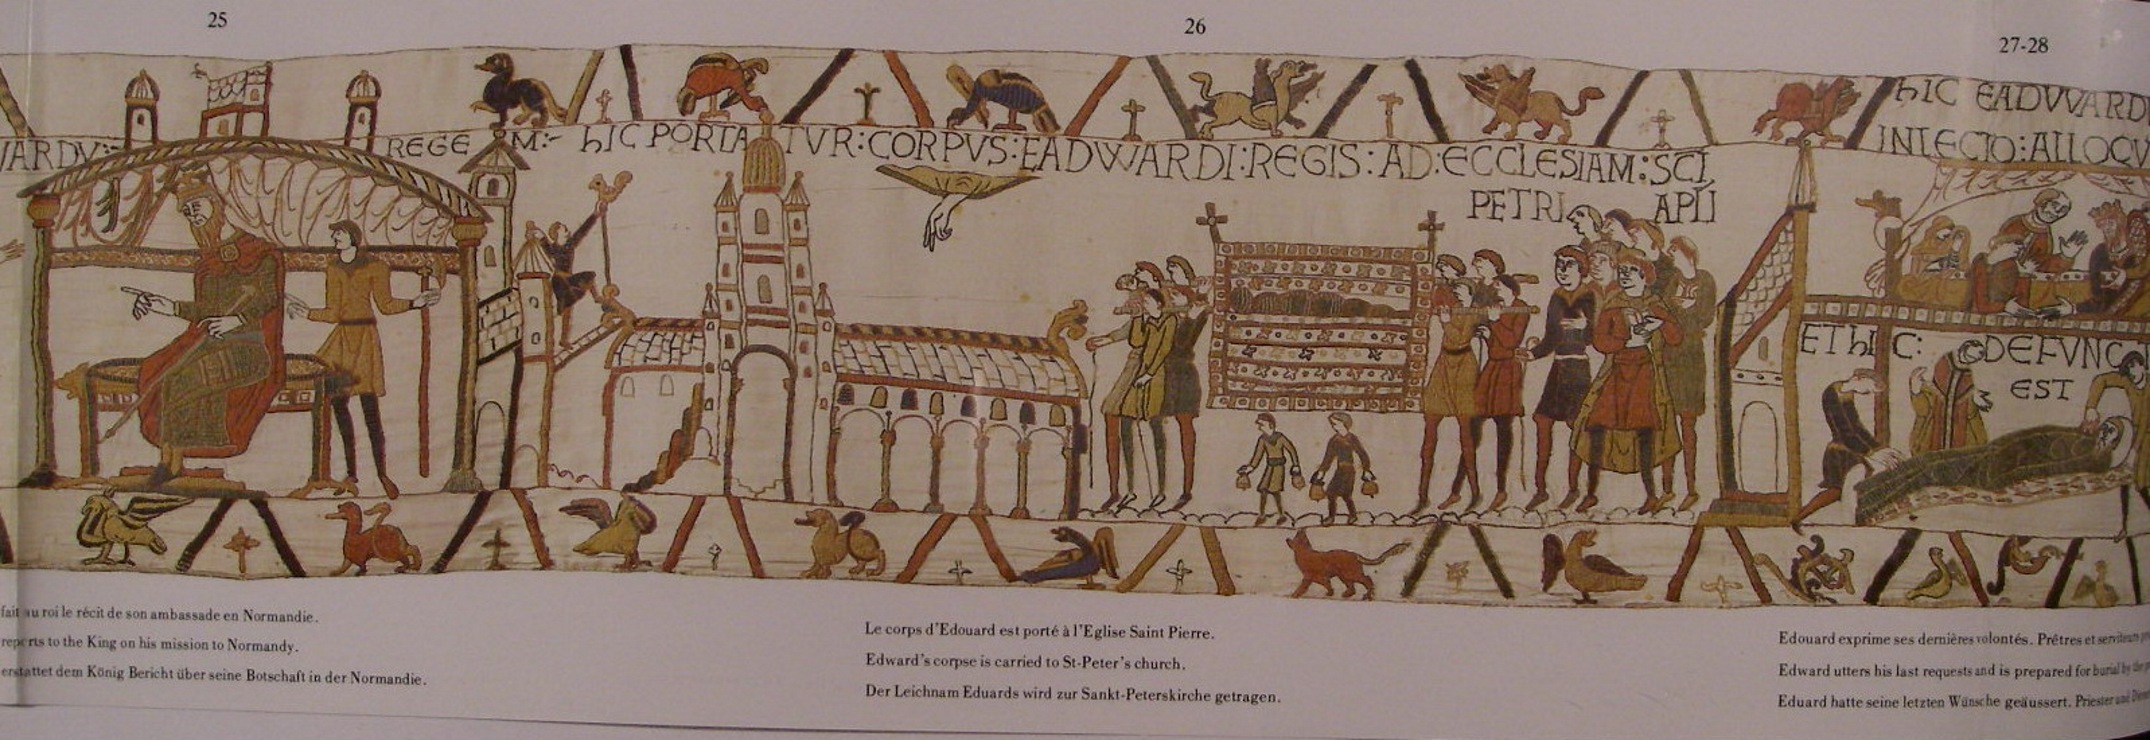 25
26
27-28
REGE M:- hIC PORTATVR:CORPVS:EADWARDI:REGIS:AD:ECCLESIAM:SCI
PETRI APLI
hIC EADVVARD
INLECTO:ALLOQV
ET hIC: DEFVNC
EST
fait au roi le récit de son ambassade en Normandie.
reports to the King on his mission to Normandy.
erstattet dem König Bericht über seine Botschaft in der Normandie.
Le corps d'Edouard est porté à l'Eglise Saint Pierre.
Edward's corpse is carried to St-Peter's church.
Der Leichnam Eduards wird zur Sankt-Peterskirche getragen.
Edouard exprime ses dernières volontés. Prêtres et serviteurs
Edward utters his last requests and is prepared for burial by the
Eduard hatte seine letzten Wünsche geäussert. Priester und